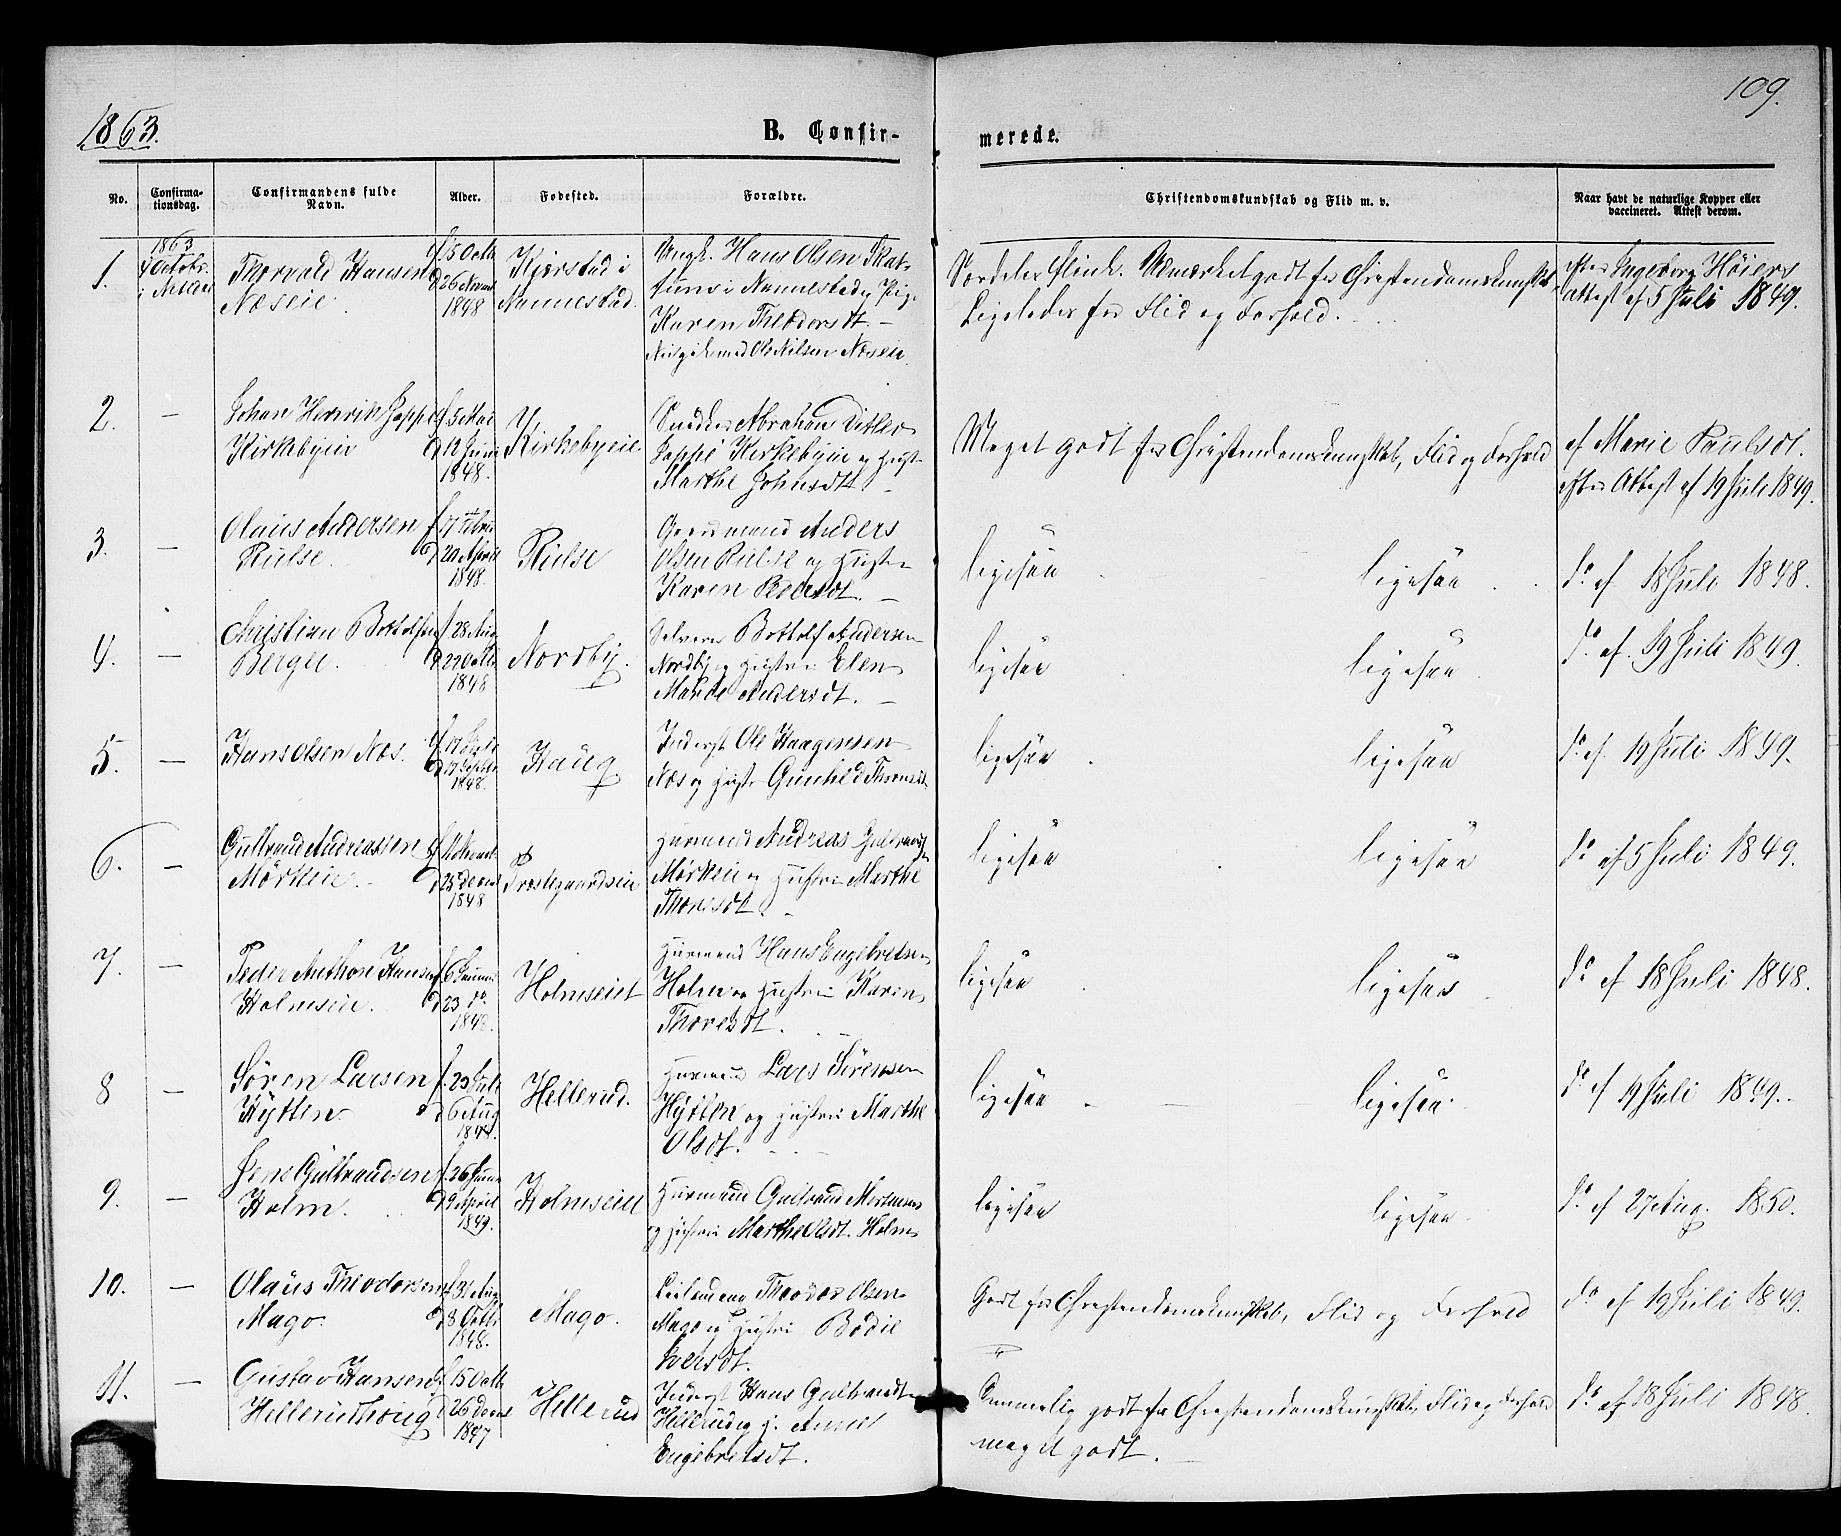 109.
1863.
B. Confir-
merede.
No.
Confirma-
tionsdag.
Confirmandens fulde
Navn.
Alder.
Fødested.
Forældre.
Christendomskundskab og Flid m. v.
Naar havt de naturlige Kopper eller
vaccineret. Attest derom.
1.
1863
4 Octobr.
Thorvald Hansen
Næseie.
f 15 Octb
d 26 Novemb
1848
Kjerstad i
Nannestad.
Ungk. Hans Olsen Kat-
i Nannestad og Pige
Karen Theodorsdt. -
med Ole Nilsen Næseie.
Særdeles flink. Udmærket godt for Christendomskundskab
Ligeledes for Flid og Forhold.
efter Ingeborg Høiers
Attest af 5 Juli 1849.
2.
—
Johan Henrik Jappe
Kirkebyeie
f 5 Mai
d 12 Juni
1848.
Kirkebyeie.
Snedker Abraham Ditlev
Jappe Kirkebyeie og Hustr
Marthe Johnsdt. -
Meget godt for Christendomskundskab, Flid og Forhold
af Marie Paulsdt.
efter Attest af 19 Juli 1849.
3.
—
Olaus Andersen
Rulse.
f 17 Febr
d 20 April
1848.
Rulse
Gaardmand Anders
Olsen Rulse og Hustru
Karen Pedersdt. -
ligesaa
ligesaa
do af 18 Juli 1848.
4.
—
Christian Bottolfsen
Berger.
f 28 Aug
d 22 Octb
1848
Nordby.
Selveier Bottolf Andersen
Nordby og Hustru Elen
Marie Andersdt. -
ligesaa
ligesaa
do af 19 Juli 1849.
5.
—
Hans Olsen Næs.
f 17 Septb
d 17 Septbr
1848.
Haug
Inderst Ole Haagensen
Næs og Hustr Gunhild Thomasdt
ligesaa
ligesaa
do af 19 Juli 1849.
6.
—
Gulbrand Andreassen
Mørkeie.
d 25 Decbr
1848
Præstegaardseie
Huusmand Andreas Gulbrands
Mørkeie og Hustru Marthe
Thoresdt. -
ligesaa
ligesaa
do af 5 Juli 1849.
7.
—
Peder Anthon Hansen
Holmseie.
f 6 Januar
d 23 do
1848.
Holmseiet
Huusmand Hans Engebretsen
Holm og Hustru Karen
Thoresdt.
ligesaa
ligesaa
do af 18 Juli 1848.
8
—
Søren Larsen
Hytten.
f. 23 Juli
d 6 Aug
1848.
Hellerud.
Huusmand Lars Sørensen
Hytten og Hustru Marthe
Olsdt.
ligesaa
ligesaa.
do af 19 Juli 1849.
9.
—
Jens Gulbrandsen
Holm.
d 9 April
1849.
Holmseiet
Huusmand Gulbrand Mortensen
og Hustru Marthe Olsdt. Holm
ligesaa
ligesaa.
do af 27 Aug. 1850.
10.
—
Olaus Theodorsen
Mago.
f 31 Aug
d 8 Octb
1848.
Mago.
Leilænding Theodor Olsen
Mago og Hustru Bodil
Iversdt.
Godt for Christendomskundskab, Flid og Forhold
do af 19 Juli 1849.
11.
—
Gustav Hansen
Hellerudhoug
f 15 Octb
d 26 Decbr
1847
Hellerud
Inderst Hans Gulbrands
Hellerud og H.
Engebretsdt.
Temmelig godt for Christendomskundskab, Flid og Forhold
meget godt.
do af 18 Juli 1848.